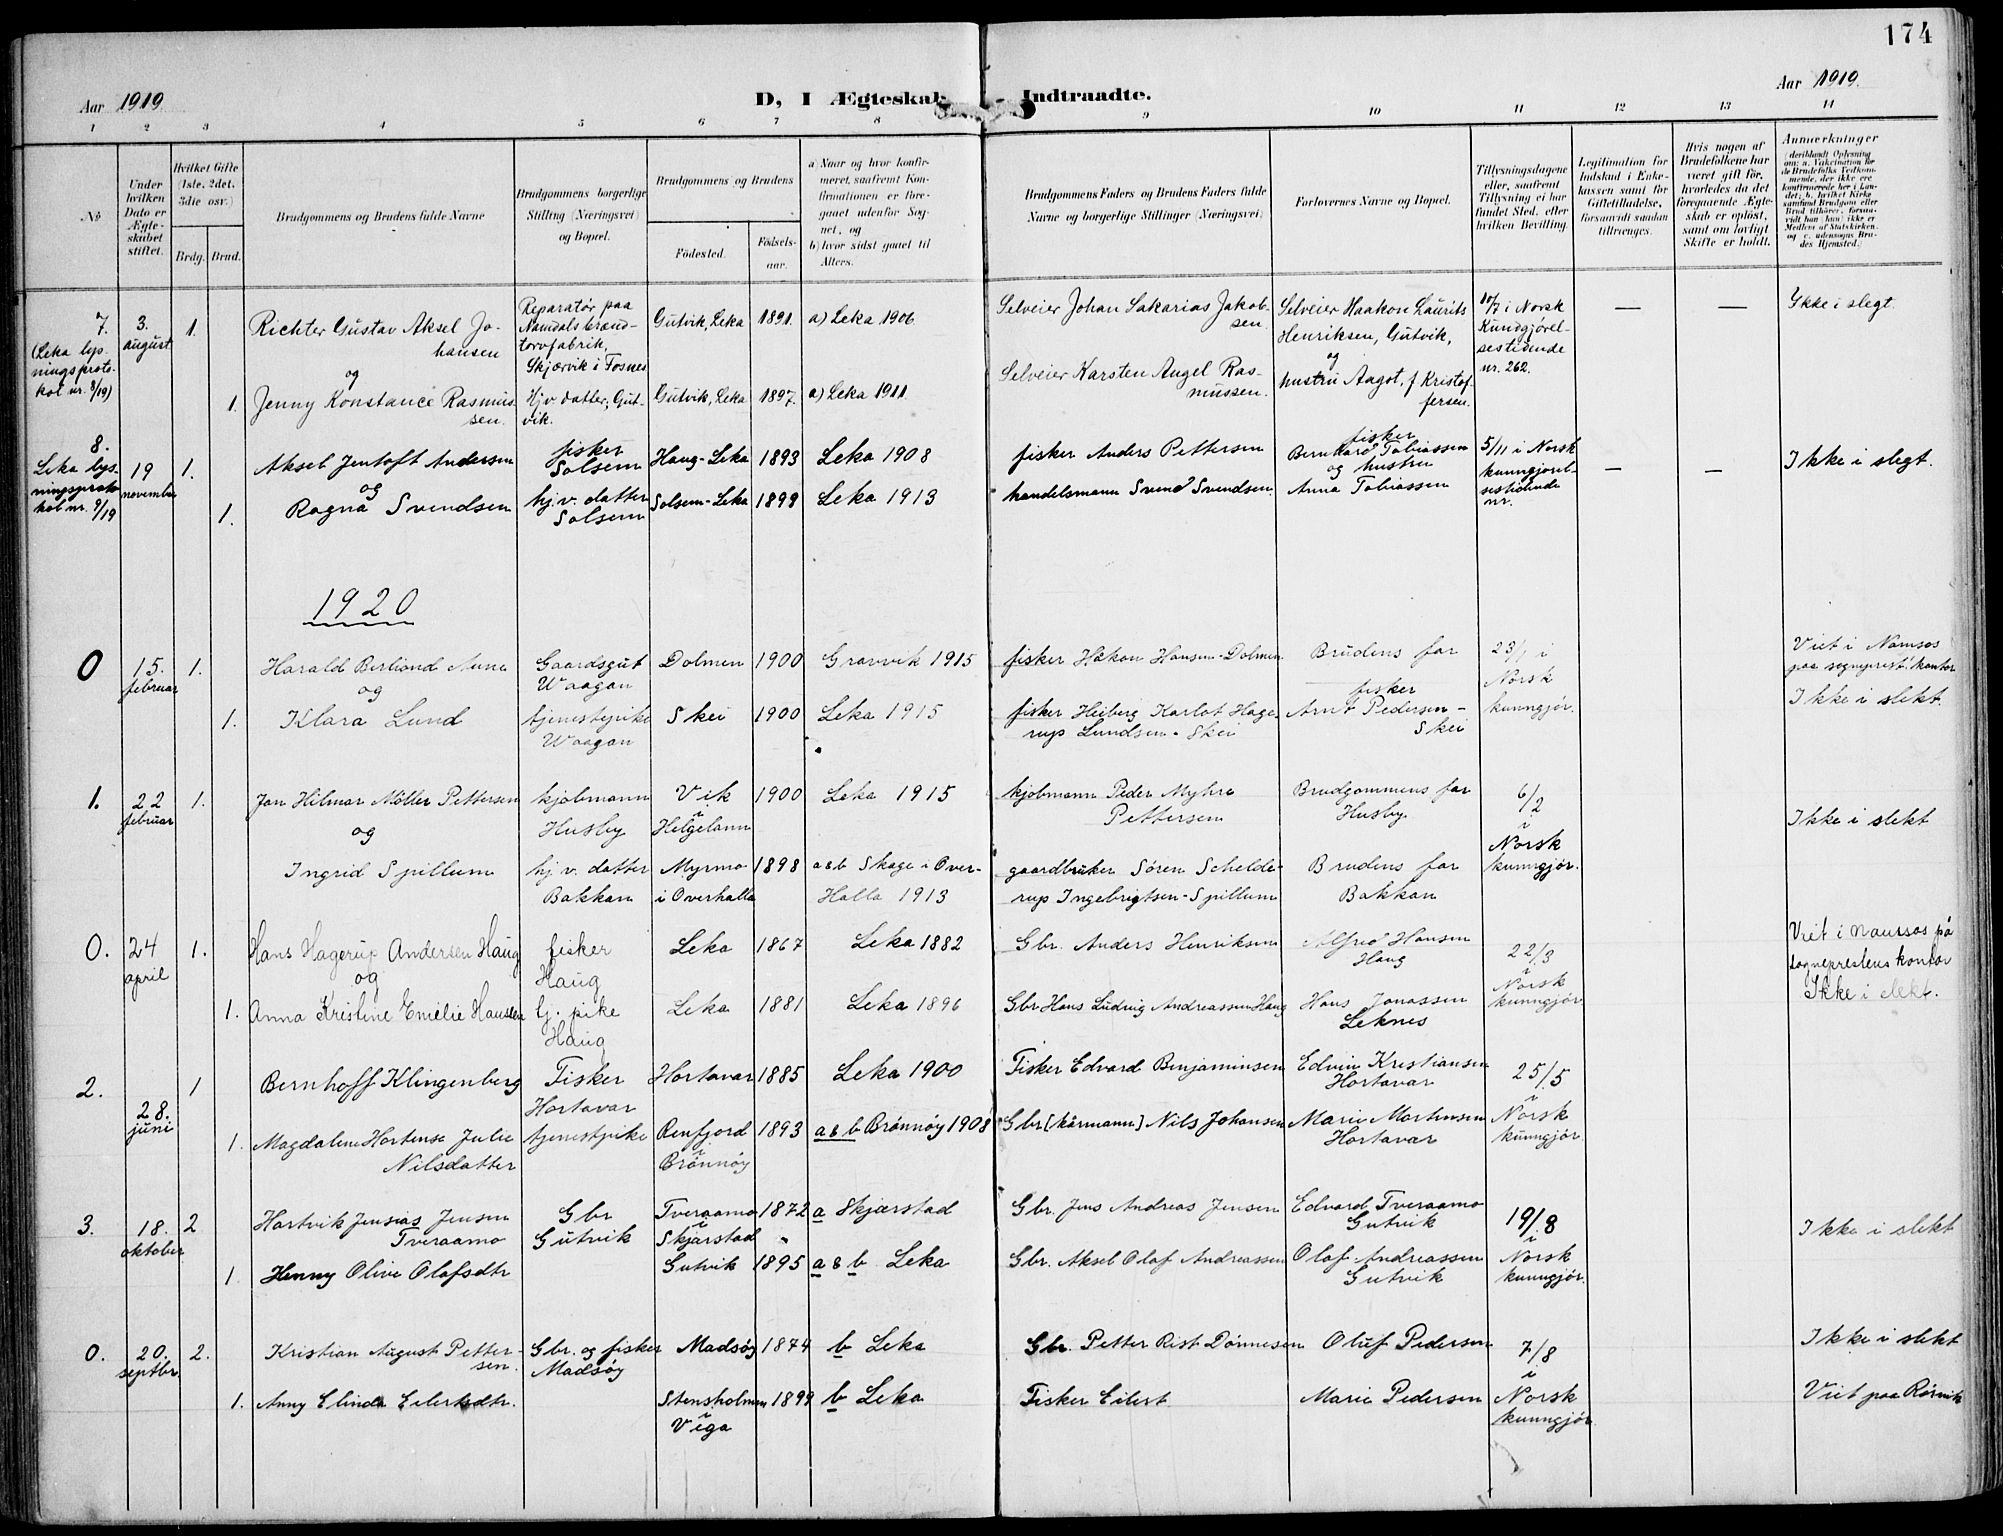 174
Aar 1919
D, I Ægteskab Indtraadte.
Aar 1919.
1 2 3 4 5 6 7 8 9 10 11 12 13 14
No
Under hvilken Dato er Ægteskabet stiftet.
Hvilket Gifte (1ste, 2det, 3die osv.)
Brdg. Brud.
Brudgommens og Brudens fulde Navne
Brudgommens borgerlige Stilling (Næringsvei) og Bopæl.
Brudgommens og Brudens
Fødested.
Fødselsaar.
a) Naar og hvor konfirmeret, saafremt Konfirmationen er foregaaet udenfor Sognet, og
b) hvor sidst gaaet til Alters.
Brudgommens Faders og Brudens Faders fulde Navne og borgerlige Stillinger (Næringsvei)
Forlovernes Navne og Bopæl.
Tillysningsdagene eller, saafremt Tillysning ei har fundet Sted, efter hvilken Bevilling.
Legitimation for Indskud i Enkekassen samt for Giftetilladelse, forsaavidt saadan tiltrænges.
Hvis nogen af Brudefolkene har været gift før, hvorledes da det foregaaende Ægteskab er opløst, samt om lovligt Skifte er holdt.
Anmærkninger
(deriblandt Oplysning om: a. Vakcination for de Brudefolks Vedkommende, der ikke ere konfirmerede her i Landet; b. hvilket Kirkesamfund Brudgom eller Brud tilhører, forsaavidt han (hun) ikke er Medlem af Statskirken, og c. udensogns Brudes Hjemsted.)
7.
(Leka lysningsprotokol nr. 8/19)
3. august
1.
Richter Gustav Aksel Johansen
Reparatør paa Namdals brændtorvfabrik, Skjærvik i Fosnes
Gutvik, Leka 1891. a) Leka 1906
Selveier Johan Sakarias Jakobsen
Selveier Haakon Laurits Henriksen, Gutvik,
og
hustru Aagot, f Kristoffersen.
10/7 i Norsk Kundgjørelsestidende nr. 262.
— —
Ikke i slegt.
og
1. Jenny Konstance Rasmussen.
Hjv. datter, Gutvik.
Gutvik, Leka 1897. a) Leka 1911
Selveier Karsten Angel Rasmussen.
8.
Leka lysningsprotokol nr. 9/19
19 november
1.
Aksel Jentoft Andersen
fisker Solsem
Haug-Leka 1893 Leka 1908
fisker Anders Pettersen
fisker Bernhard Tobiassen
og hustru
Anna Tobiassen
5/11 i Norsk kunngjørelsestidende nr.
— —
Ikke i slegt.
og
1. Ragna Svendsen
hj. v. datter Solsem
Solsem-Leka 1899 Leka 1913
handelsmann Svend Svendsen.
1920
0 15. februar 1.
Harald Berliond Aune
Gaardsgut Waagan
Dolmen 1900 Gravvik 1915
fisker Håkon Hansen-Dolmen
Brudens far
23/1 i Norsk kunngjør.
Viet i Namsos paa sogneprest. kontor
Ikke i slekt.
og
1. Klara Lund
tjenestepike Waagan
Skei 1900 Leka 1915
fisker Heiberg Karlot Hagerup Lundsen - Skei
fisker Arnt Pedersen - Skei
1. 22 februar 1.
Jon Hilmar Möller Pettersen
kjøbmann Husby
Vik i Helgelann 1900 Leka 1915
kjøbmann Peder Myhre Pettersen
Brudgommens far Husby.
6/2 i Norsk kunngjør.
Ikke i slekt
og
Ingrid Spillum
hj. v. datter Bakkan
Myrmo i Overhalla 1898 a&b Skage i Over-Halla 1913
gaardbruker Søren Schelderup Ingebrigtsen-Spillum
Brudens far Bakkan
0. 24 april 1.
Hans Hagerup Andersen Haug
fisker Haug
Leka 1867 Leka 1882
Gbr. Anders Henriksen
Alfred Hansen Haug
22/3 i Norsk kunngjør
Viet i Namsos på sogneprestens kontor
Ikke i slekt.
og
1. Anna Kristine Emelie Hansen
tj. pike Haug
Leka 1881 Leka 1896
Gbr. Hans Ludvig Andreassen Haug
Hans Jonassen Leknes
2. 28. juni 1
Bernhoff Klingenberg
Fisker Hortavar
Hortavar 1885 Leka 1900
Fisker Edvard Benjaminsen
Edvin Kristiansen Hortavar
25/5 i Norsk kunngjør.
1. Magdalene Hortense Julie Nilsdatter
tjenestpike
Renfjord i Brønnøy 1893 a & b Brønnøy 1908
Gbr [kårmann] Nils Johansen
Marie Mortensen Hortavar
3. 18. oktober 2
Hartvik Jensias Jensen Tveraamo
Gbr Gutvik
Tveraamo i Skjærstad 1872 a Skjærstad
Gbr. Jens Andreas Jensen
Edvard Tveraamo Gutvik
19/8 i Norsk kunngjør.
Ikke i slekt
1. Henny Olive Olafsdtr
Gutvik 1895 a & b Leka
Gbr. Aksel Olaf Andreassen
Olaf Andreassen Gutvik
0. 20. septbr. 2.
Kristian August Pettersen.
Gbr. og fisker Madsøy
Madsøy 1874 b Leka
Gbr. Petter Rist Dønnesen
Oluf Pedersen
7/8 i Norsk kunngjør
Ikke i slekt
1. Anny Elinda Eilertsdtr.
Stensholmen i Vega 1899 b Leka
Fisker Eilert
Marie Pedersen
Viet paa Rørvik